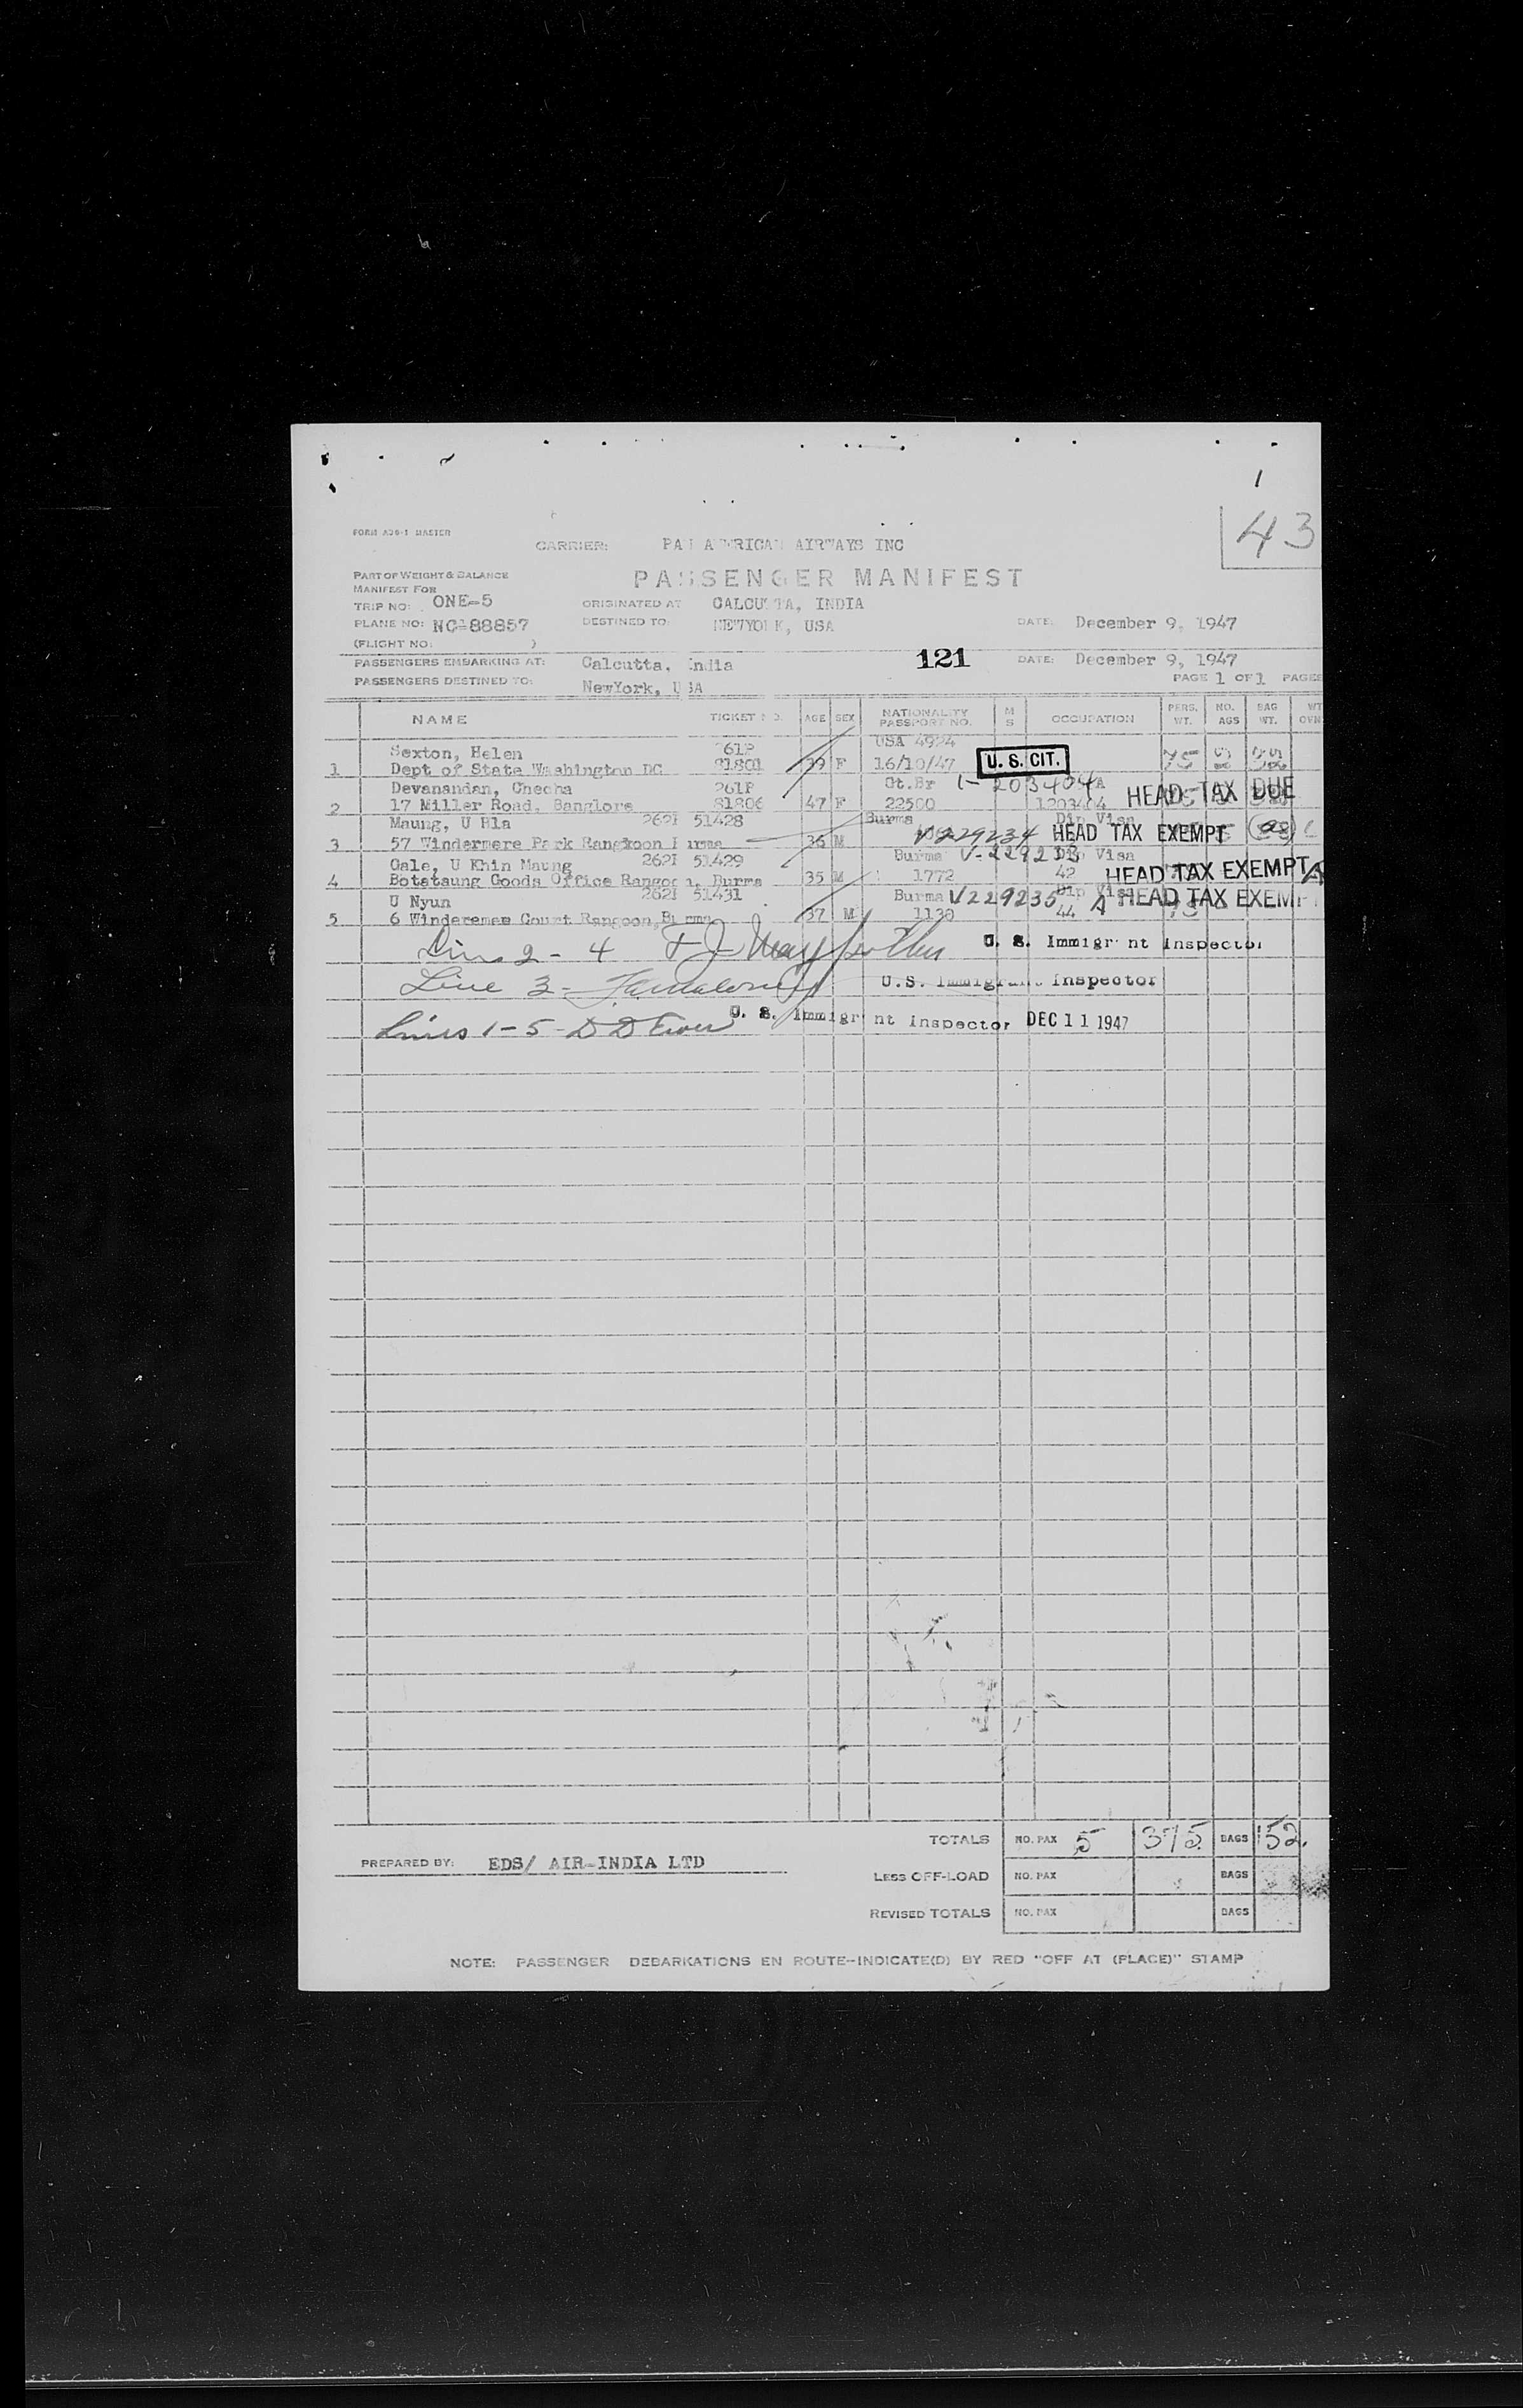 1
43
FORM A30-1 MASTER
CARRIER: PAN AMERICAN AIRWAYS INC
PASSENGER MANIFEST
PART OF WEIGHT & BALANCE
MANIFEST FOR
TRIP NO: ONE-5 ORIGINATED AT CALCUTTA, INDIA
PLANE NO: NC-88857 DESTINED TO: NEWYORK, USA DATE: December 9, 1947
(FLIGHT NO: )
PASSENGERS EMBARKING AT: Calcutta, India 121 DATE: December 9, 1947
PASSENGERS DESTINED TO: NewYork, USA PAGE 1 OF 1 PAGES
NAME TICKET NO. AGE SEX NATIONALITY PASSPORT NO. M S OCCUPATION PERS. WT. NO. AGS BAG WT. WT OVN
Sexton, Helen 61P USA 4924
1 Dept of State Washington DC 81801 39 F 16/10/47 U. S. CIT. 75
Devanandan, Checha 261P Gt.Br 1-203404 A HEAD TAX DUE
2 17 Miller Road, Banglore 81806 47 F 22500 1203404
Maung, U Hla 262I 51428 Burma Dip Visa
3 57 Windermere Park Rangkoon Burma 36 M V-229234 HEAD TAX EXEMPT
Gale, U Khin Maung 262I 51429 Burma Dip Visa
4 Botataung Goods Office Rangoon, Burma 35 M 1772 42 HEAD TAX EXEMPT A
U Nyun 262I 51431 Burma V229235 Dip Visa A HEAD TAX EXEMPT
5 6 Winderemee Court Rangoon, Burma 37 M 1130 44
Line 2 - 4 U. S. Immigrant Inspector
Line 3 - U.S. Immigrant Inspector
Lines 1 - 5 - D D U. S. Immigrant Inspector DEC 11 1947
TOTALS NO. PAX 5 375 BAGS 152.
PREPARED BY: EDS/ AIR-INDIA LTD
LESS OFF-LOAD NO. PAX BAGS
REVISED TOTALS NO. PAX BAGS
NOTE: PASSENGER DEBARKATIONS EN ROUTE--INDICATE(D) BY RED "OFF AT (PLACE)" STAMP